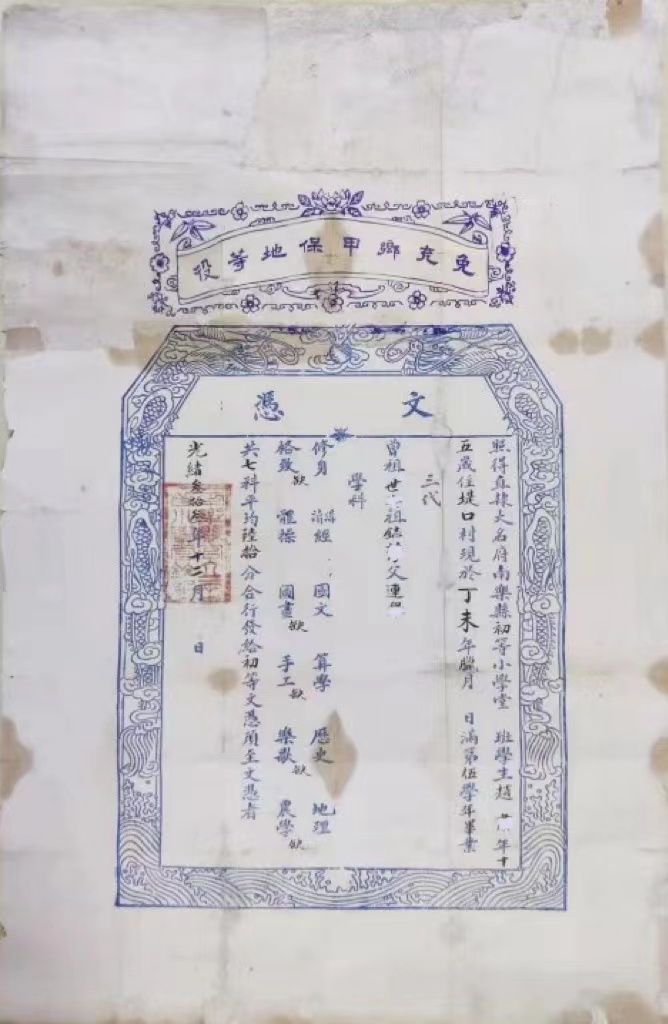 免充鄉甲保地等役
文憑
照得直隸大名府南樂縣初等小學堂 班學生趙 年十
五歲住堤口村現於丁未年臘月 日滿第伍學年畢業
三代
曾祖世 祖錦 父連
學科
修身 講經 國文 算學 歷史 地理
格致欵 體操 國畫欵 手工欵 樂歌欵 農學欵
共七科平均陸拾分合行發給初等文憑須至文憑者
光緒叁拾 年十二月 日